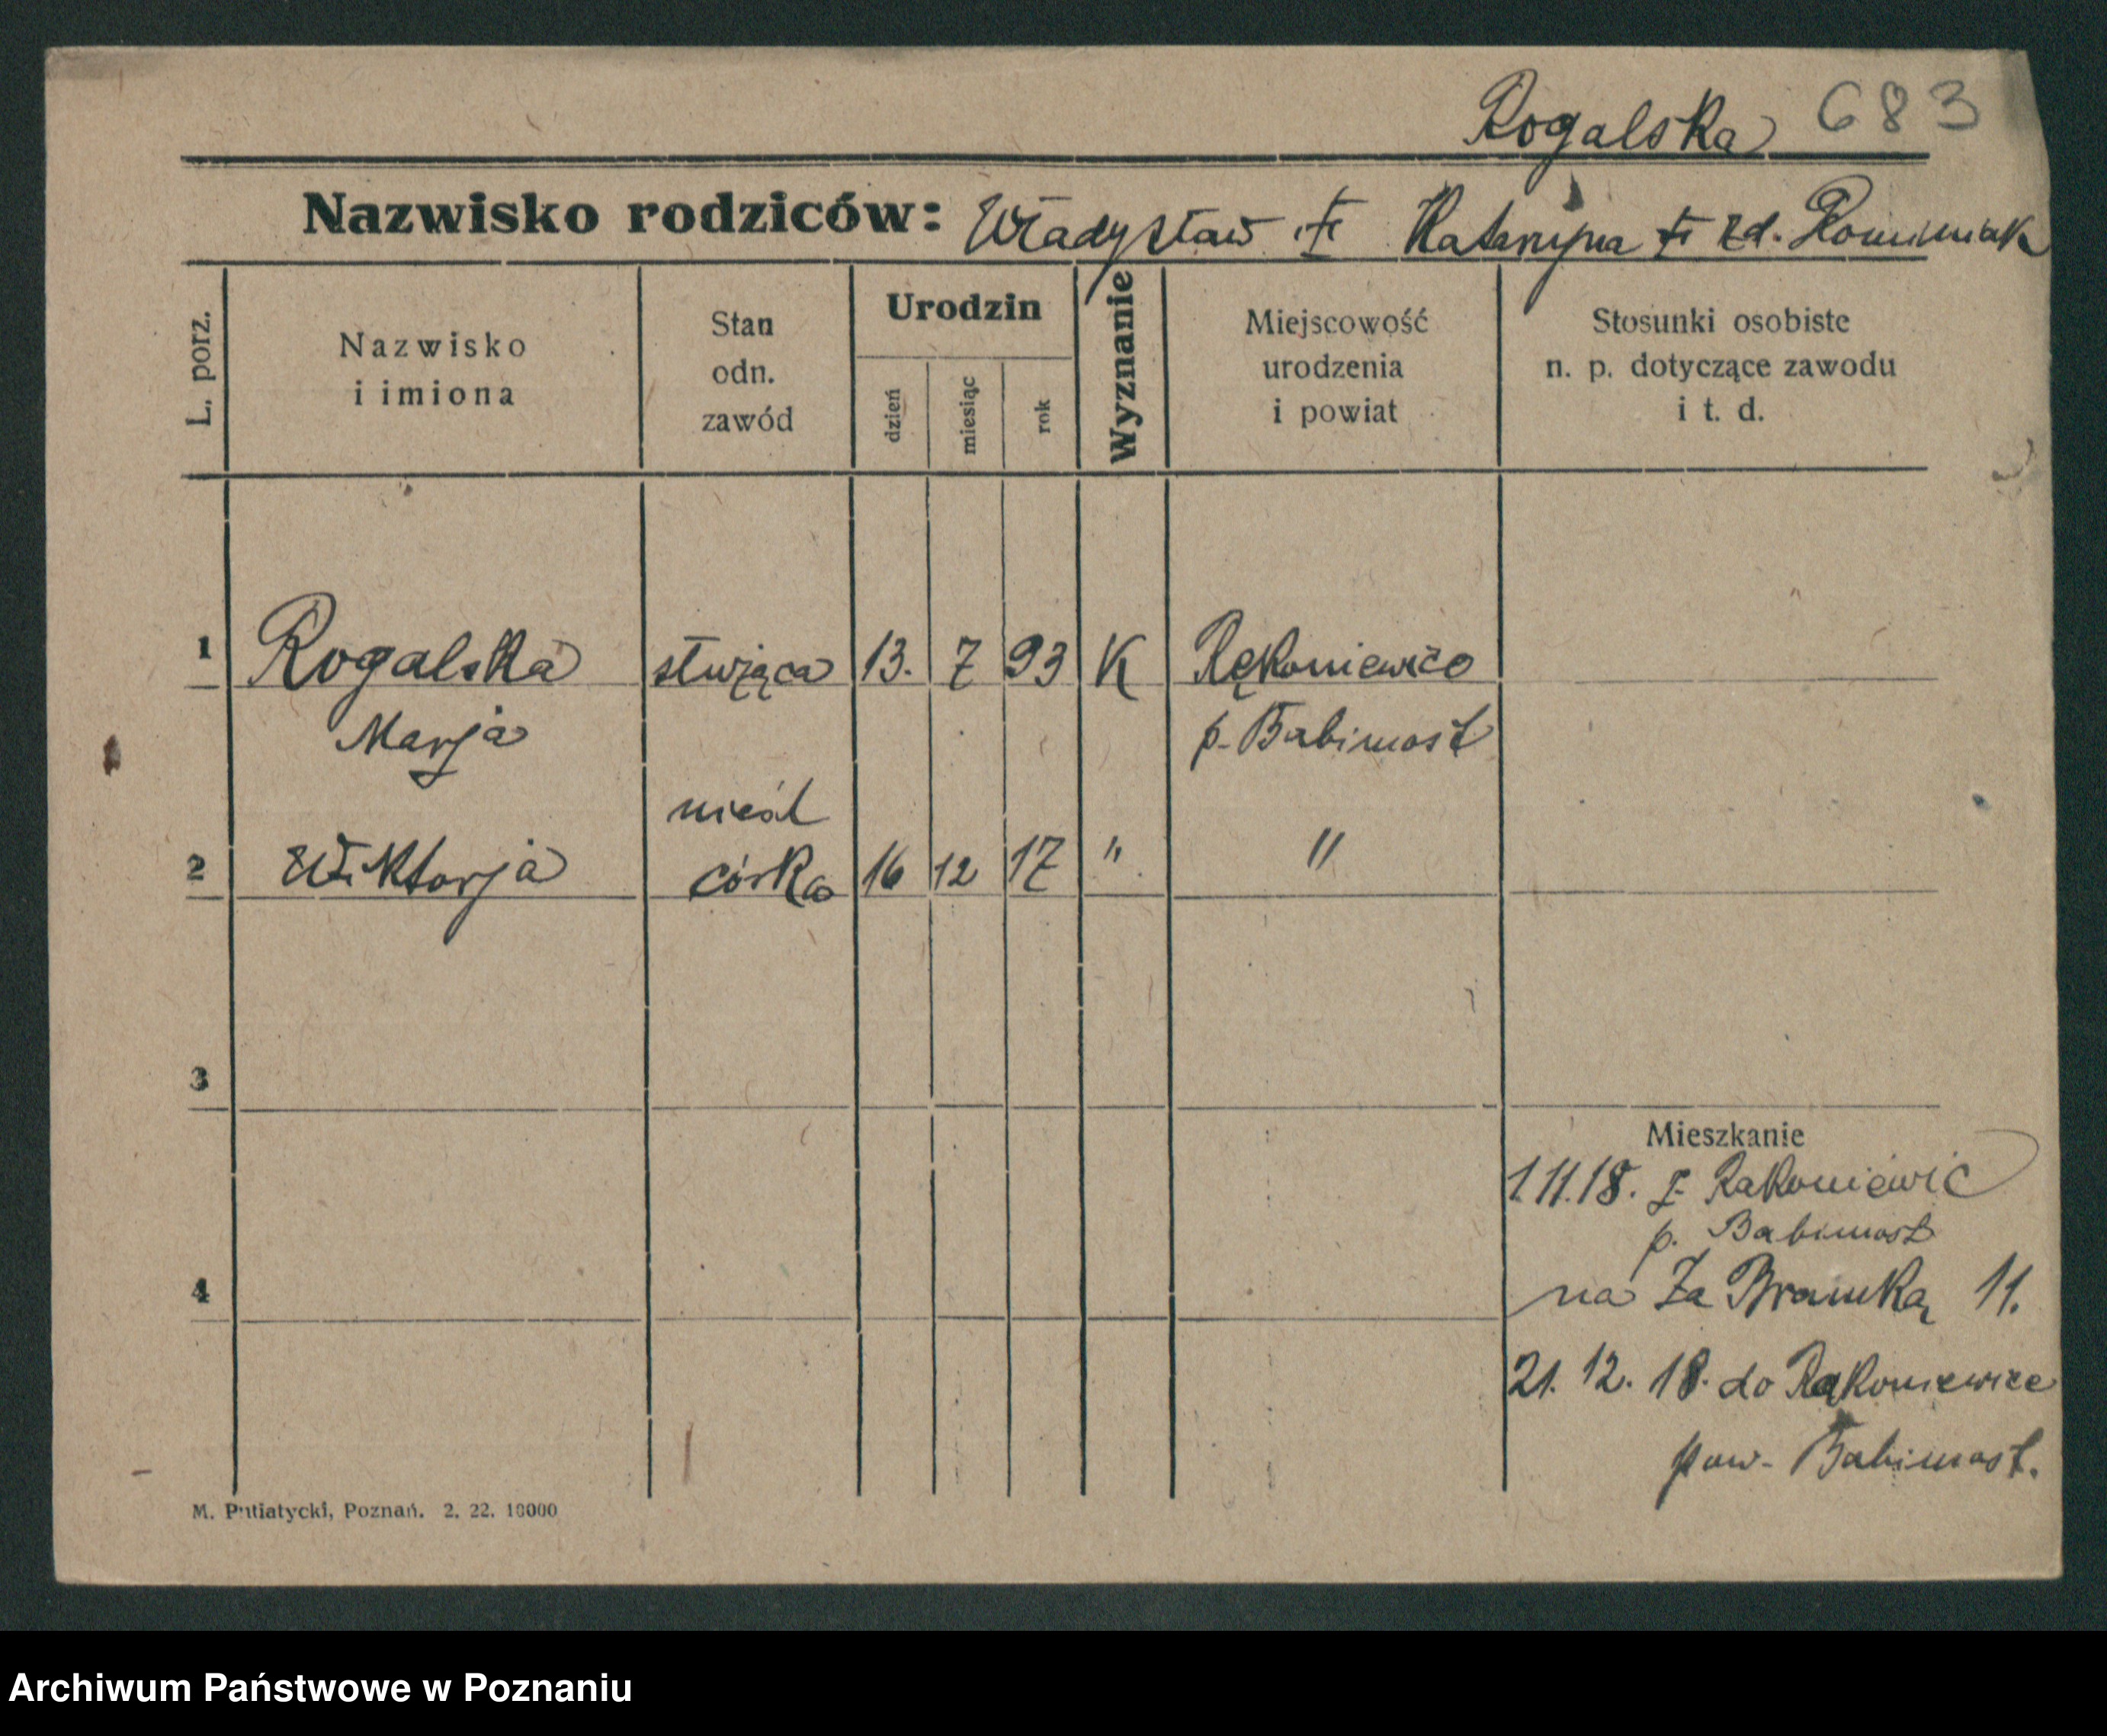 Rogalska 683
Nazwisko rodziców: Władysław † Katarzyna † zd.
L. porz.
Nazwisko
i imiona
Stan
odn.
zawód
Urodzin
dzień
miesiąc
rok
Wyznanie
Miejscowość
urodzenia
i powiat
Stosunki osobiste
n. p. dotyczące zawodu
i t. d.
1 Rogalska służąca 13. 7 93 K Rękoniewice
Marja p. Babimost
nieśl
2 Wiktorja córka 16 12 17 " "
3
Mieszkanie
1.11.18. z Rakoniewic
p. Babimost
4
na Za Bramką 11.
21. 12. 18. do Rąkoniewice
pow. Babimost.
M. Putiatycki, Poznań. 2. 22. 10000
Archiwum Państwowe w Poznaniu